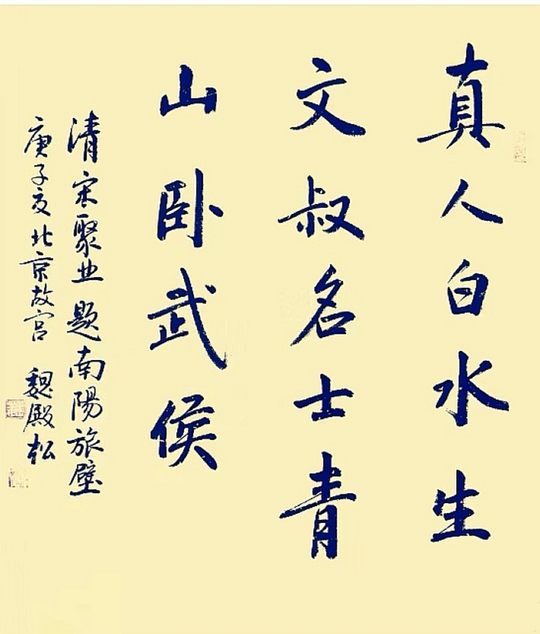 真人白水生
文叔名士青
山卧武侯
清宋聚业题南陽旅壁
庚子夏北京故宫 魏殿松